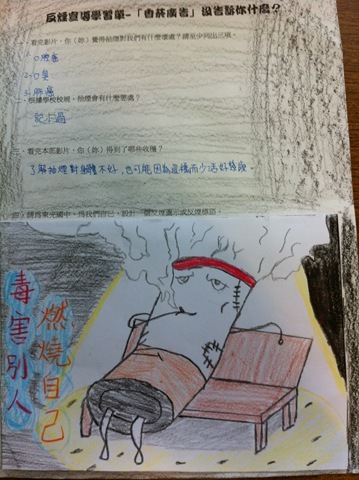 反菸宣導學習單-「香菸廣告」沒告訴你什麼？
一、看完影片，你（妳）覺得抽煙對我們有什麼壞處？請至少列出三項。
1.口腔癌
2.口臭
3.肺癌
二、根據學校校規，抽煙會有什麼懲處？
記小過
三、看完本部影片，你（妳）得到了哪些收穫？
了解抽煙對身體不好，也可能因為這樣而少活好幾歲。
四、請為東光國中、為我們自己，設計一個反煙圖示或反煙標語。
燃燒自己
毒害別人